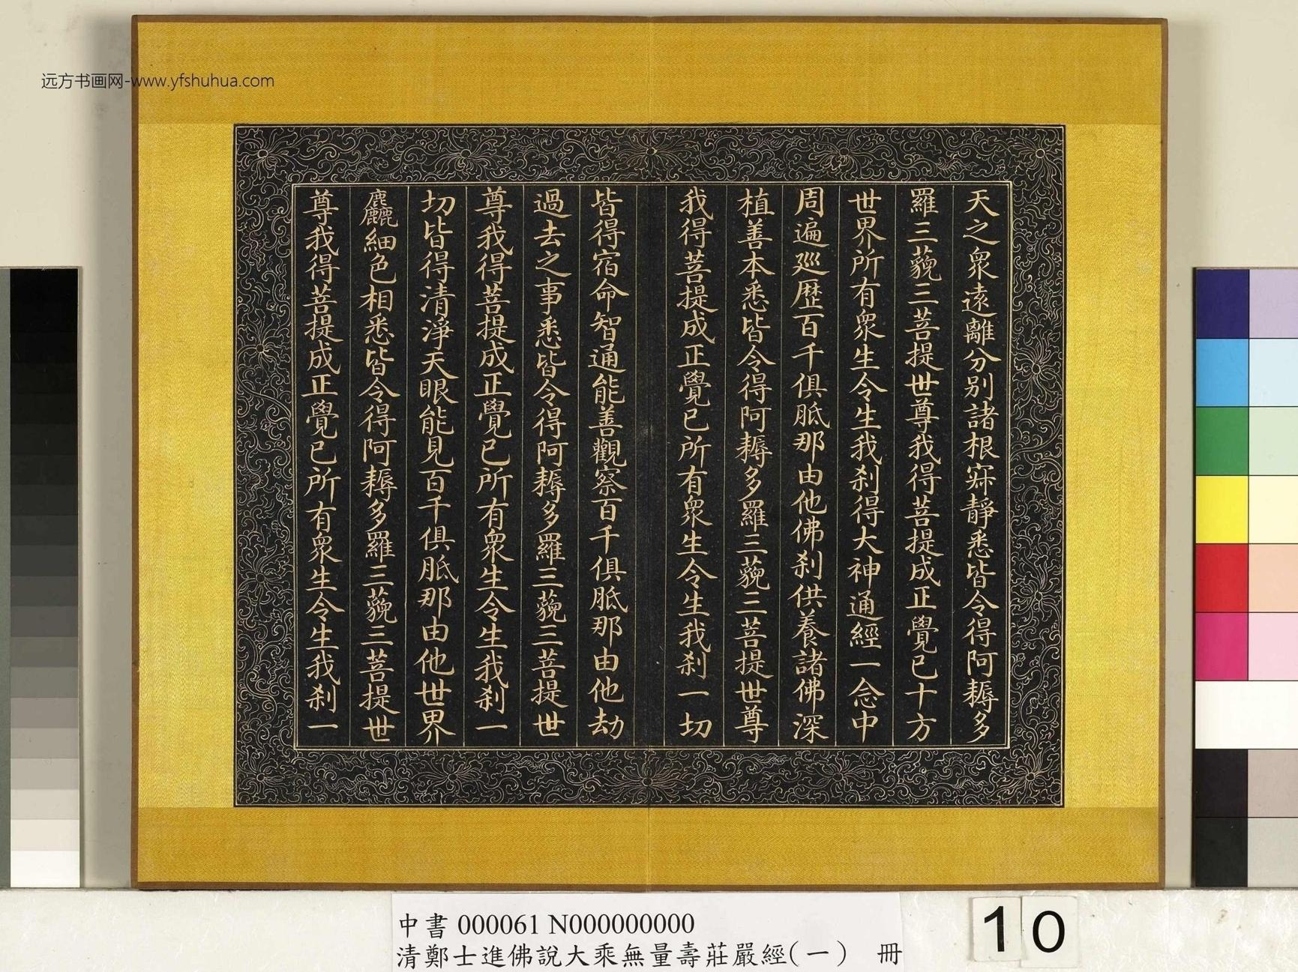 远方书画网-www.yfshuhua.com
天之衆遠離分別諸根寂靜悉皆令得阿耨多
羅三藐三菩提世尊我得菩提成正覺已十方
世界所有衆生令生我刹得大神通經一念中
周遍廵歴百千俱胝那由他佛刹供養諸佛深
植善本悉皆令得阿耨多羅三藐三菩提世尊
我得菩提成正覺已所有衆生令生我刹一切
皆得宿命智通能善觀察百千俱胝那由他劫
過去之事悉皆令得阿耨多羅三藐三菩提世
尊我得菩提成正覺已所有衆生令生我刹一
切皆得清淨天眼能見百千俱胝那由他世界
麤細色相悉皆令得阿耨多羅三藐三菩提世
尊我得菩提成正覺已所有衆生令生我刹一
中書 000061 N000000000
清鄭士進佛說大乘無量壽莊嚴經(一) 冊
10